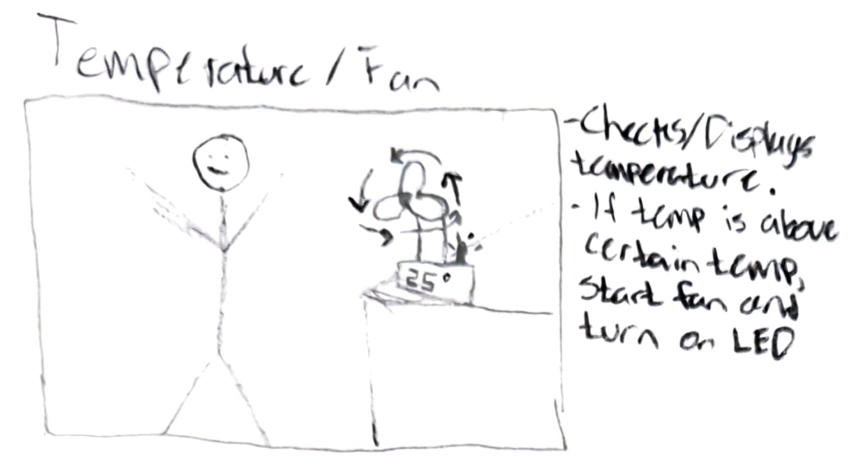 Temperature/Fan
- Checks/Displays
temperature.
- If temp is above
certain temp,
start fan and
turn on LED
25°